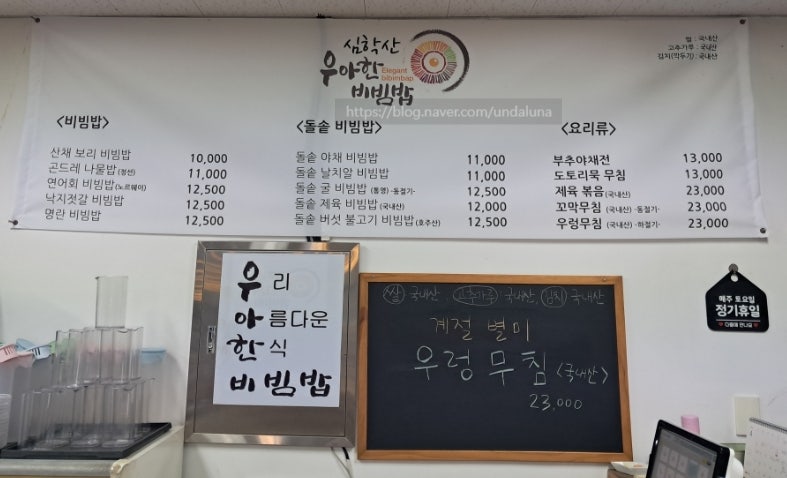 심학산
우아한
Elegant
bibimbap
비빔밥
https://blog.naver.com/undaluna
쌀 : 국내산
고추가루 : 국내산
김치(깍두기) : 국내산
<비빔밥>
산채 보리 비빔밥 10,000
곤드레 나물밥(정선) 11,000
연어회 비빔밥(노르웨이) 12,500
낙지젓갈 비빔밥 12,500
명란 비빔밥 12,500
<돌솥 비빔밥>
돌솥 야채 비빔밥 11,000
돌솥 날치알 비빔밥 11,000
돌솥 굴 비빔밥 (통영) -동절기- 12,500
돌솥 제육 비빔밥(국내산) 12,000
돌솥 버섯 불고기 비빔밥(호주산) 12,500
<요리류>
부추야채전 13,000
도토리묵 무침 13,000
제육 볶음(국내산) 23,000
꼬막무침 (국내산) -동절기- 23,000
우렁무침 (국내산) -하절기- 23,000
우리
아름다운
한식
비빔밥
쌀 국내산, 고추가루 국내산, 김치 국내산
계절 별미
우렁 무침 <국내산>
23,000
매주 토요일
정기휴일
다음에 만나요